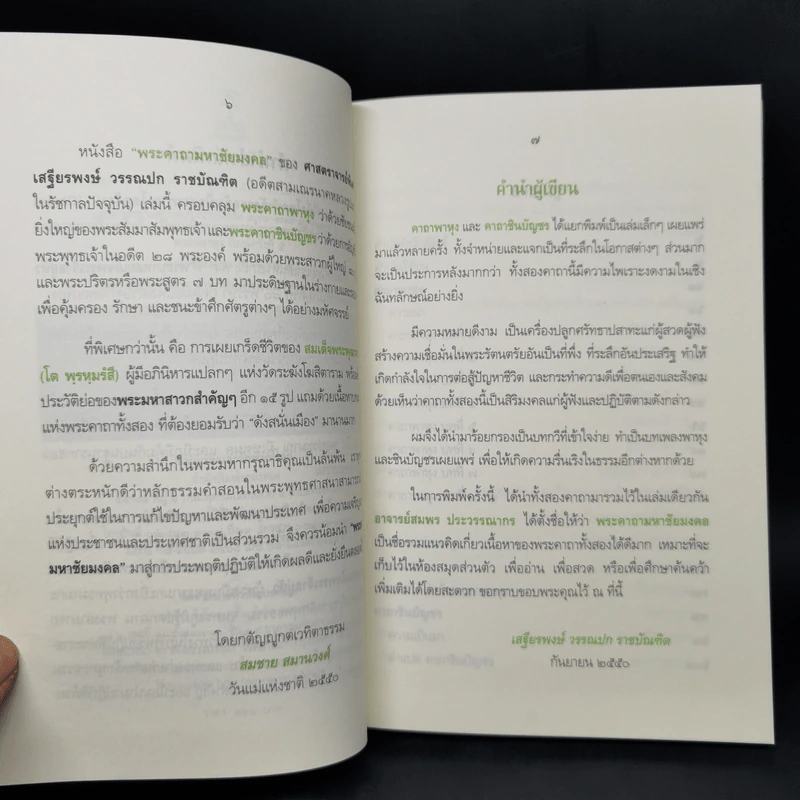 ๖
หนังสือ "พระคาถามหาชัยมงคล" ของ ศาสตราจารย์
เสฐียรพงษ์ วรรณปก ราชบัณฑิต (อดีตสามเณรนาคหลวงรูป
ในรัชกาลปัจจุบัน) เล่มนี้ ครอบคลุม พระคาถาพาหุง ว่าด้วยชัยชนะ
ยิ่งใหญ่ของพระสัมมาสัมพุทธเจ้า และพระคาถาชินบัญชร ว่าด้วยการ
พระพุทธเจ้าในอดีต ๒๘ พระองค์ พร้อมด้วยพระสาวกผู้ใหญ่
และพระปริตรหรือพระสูตร ๗ บท มาประดิษฐานในร่างกายและ
เพื่อคุ้มครอง รักษา และชนะข้าศึกศัตรูต่างๆ ได้อย่างมหัศจรรย์
ที่พิเศษกว่านั้น คือ การเผยเกร็ดชีวิตของ สมเด็จพระพุฒา
(โต พฺรหฺมรํสี) ผู้มีอภินิหารแปลกๆ แห่งวัดระฆังโฆสิตาราม พร้อม
ประวัติย่อของพระมหาสาวกสำคัญๆ อีก ๑๕ รูป แถมด้วยเนื้อหา
แห่งพระคาถาทั้งสอง ที่ต้องยอมรับว่า "ดังสนั่นเมือง" มานานมาก
ด้วยความสำนึกในพระมหากรุณาธิคุณเป็นล้นพ้น
ต่างตระหนักดีว่าหลักธรรมคำสอนในพระพุทธศาสนาสามารถ
ประยุกต์ใช้ในการแก้ไขปัญหาและพัฒนาประเทศ เพื่อความเจริญ
แห่งประชาชนและประเทศชาติเป็นส่วนรวม จึงควรน้อมนำ "พระ
มหาชัยมงคล" มาสู่การประพฤติปฏิบัติให้เกิดผลดีและยั่งยืน
โดยกตัญญูกตเวทิตาธรรม
สมชาย สมานวงศ์
วันแม่แห่งชาติ ๒๕๕๐
๗
คำนำผู้เขียน
คาถาพาหุง และ คาถาชินบัญชร ได้แยกพิมพ์เป็นเล่มเล็กๆ เผยแพร่
มาแล้วหลายครั้ง ทั้งจำหน่ายและแจกเป็นที่ระลึกในโอกาสต่างๆ ส่วนมาก
จะเป็นประการหลังมากกว่า ทั้งสองคาถานี้มีความไพเราะงดงามในเชิง
ฉันทลักษณ์อย่างยิ่ง
มีความหมายดีงาม เป็นเครื่องปลูกศรัทธาปสาทะแก่ผู้สวดผู้ฟัง
สร้างความเชื่อมั่นในพระรัตนตรัยอันเป็นที่พึ่ง ที่ระลึกอันประเสริฐ ทำให้
เกิดกำลังใจในการต่อสู้ปัญหาชีวิต และกระทำความดีเพื่อตนเองและสังคม
ด้วยเห็นว่าคาถาทั้งสองนี้เป็นสิริมงคลแก่ผู้ฟังและปฏิบัติตามดังกล่าว
ผมจึงได้นำมาร้อยกรองเป็นบทกวีที่เข้าใจง่าย ทำเป็นบทเพลงพาหุง
และชินบัญชรเผยแพร่ เพื่อให้เกิดความรื่นเริงในธรรมอีกต่างหากด้วย
ในการพิมพ์ครั้งนี้ ได้นำทั้งสองคาถามารวมไว้ในเล่มเดียวกัน
อาจารย์สมพร ประวรรณากร ได้ตั้งชื่อให้ว่า พระคาถามหาชัยมงคล
เป็นชื่อรวมแนวคิดเกี่ยวเนื้อหาของพระคาถาทั้งสองได้ดีมาก เหมาะที่จะ
เก็บไว้ในห้องสมุดส่วนตัว เพื่ออ่าน เพื่อสวด หรือเพื่อศึกษาค้นคว้า
เพิ่มเติมได้โดยสะดวก ขอกราบขอบพระคุณไว้ ณ ที่นี้
เสฐียรพงษ์ วรรณปก ราชบัณฑิต
กันยายน ๒๕๕๐